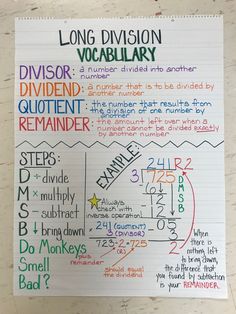 LONG DIVISION
VOCABULARY
DIVISOR: a number divided into another
number
DIVIDEND: a number that is to be divided by
another number
QUOTIENT: the number that results from
the division of one number by another
REMAINDER: the amount left over when a
number cannot be divided exactly
by another number
STEPS:
D → ÷ divide
M → x multiply
S → - subtract
B → ↓ bring down
Do Monkeys
Smell
Bad?
EXAMPLE:
241 R2
3 725
-6
12
-12
05
-3
2
D
M
S
B
Always
check with
inverse operation
241 (QUOTIENT)
x 3 (DIVISOR)
723 + 2 = 725
plus
remainder
should equal
the dividend
When
there is
nothing left
to bring down,
the difference that
you found by subtraction
is your REMAINDER.